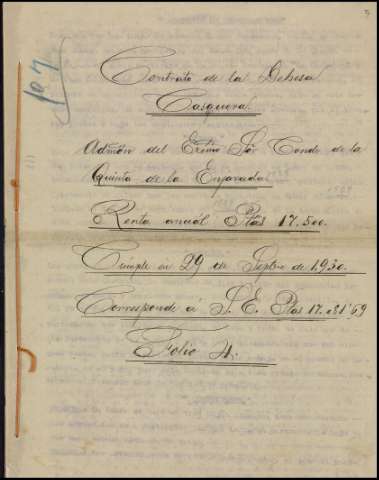 3
107
Contrato de la Dehesa
Casquera
Admón del Exmo Sr Conde de la
Quinta de la Enjarada
Renta anual Ptas 17.500.
Cumple en 29 de Sepbre de 1930.
Corresponde á S. E. Ptas 17.281'69
Folio 21.